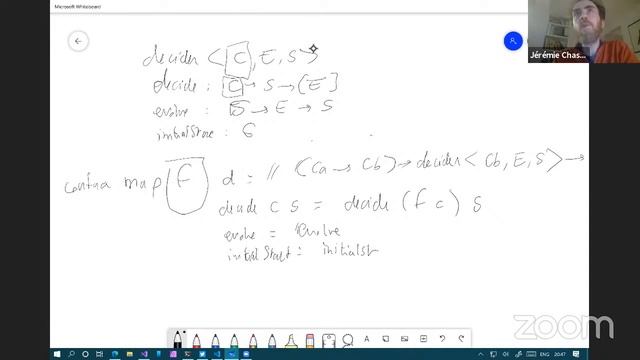 Microsoft Whiteboard
Jérémie Chas...
decider < C, E, S >
decide : C → S → [E]
evolve : S → E → S
initialState : S
contra map F d = // (Ca → Cb) → decider < Cb, E, S > →
decide c s = decide (f c) s
evolve = evolve
initialState = initialSt
zoom
ENG 20:47